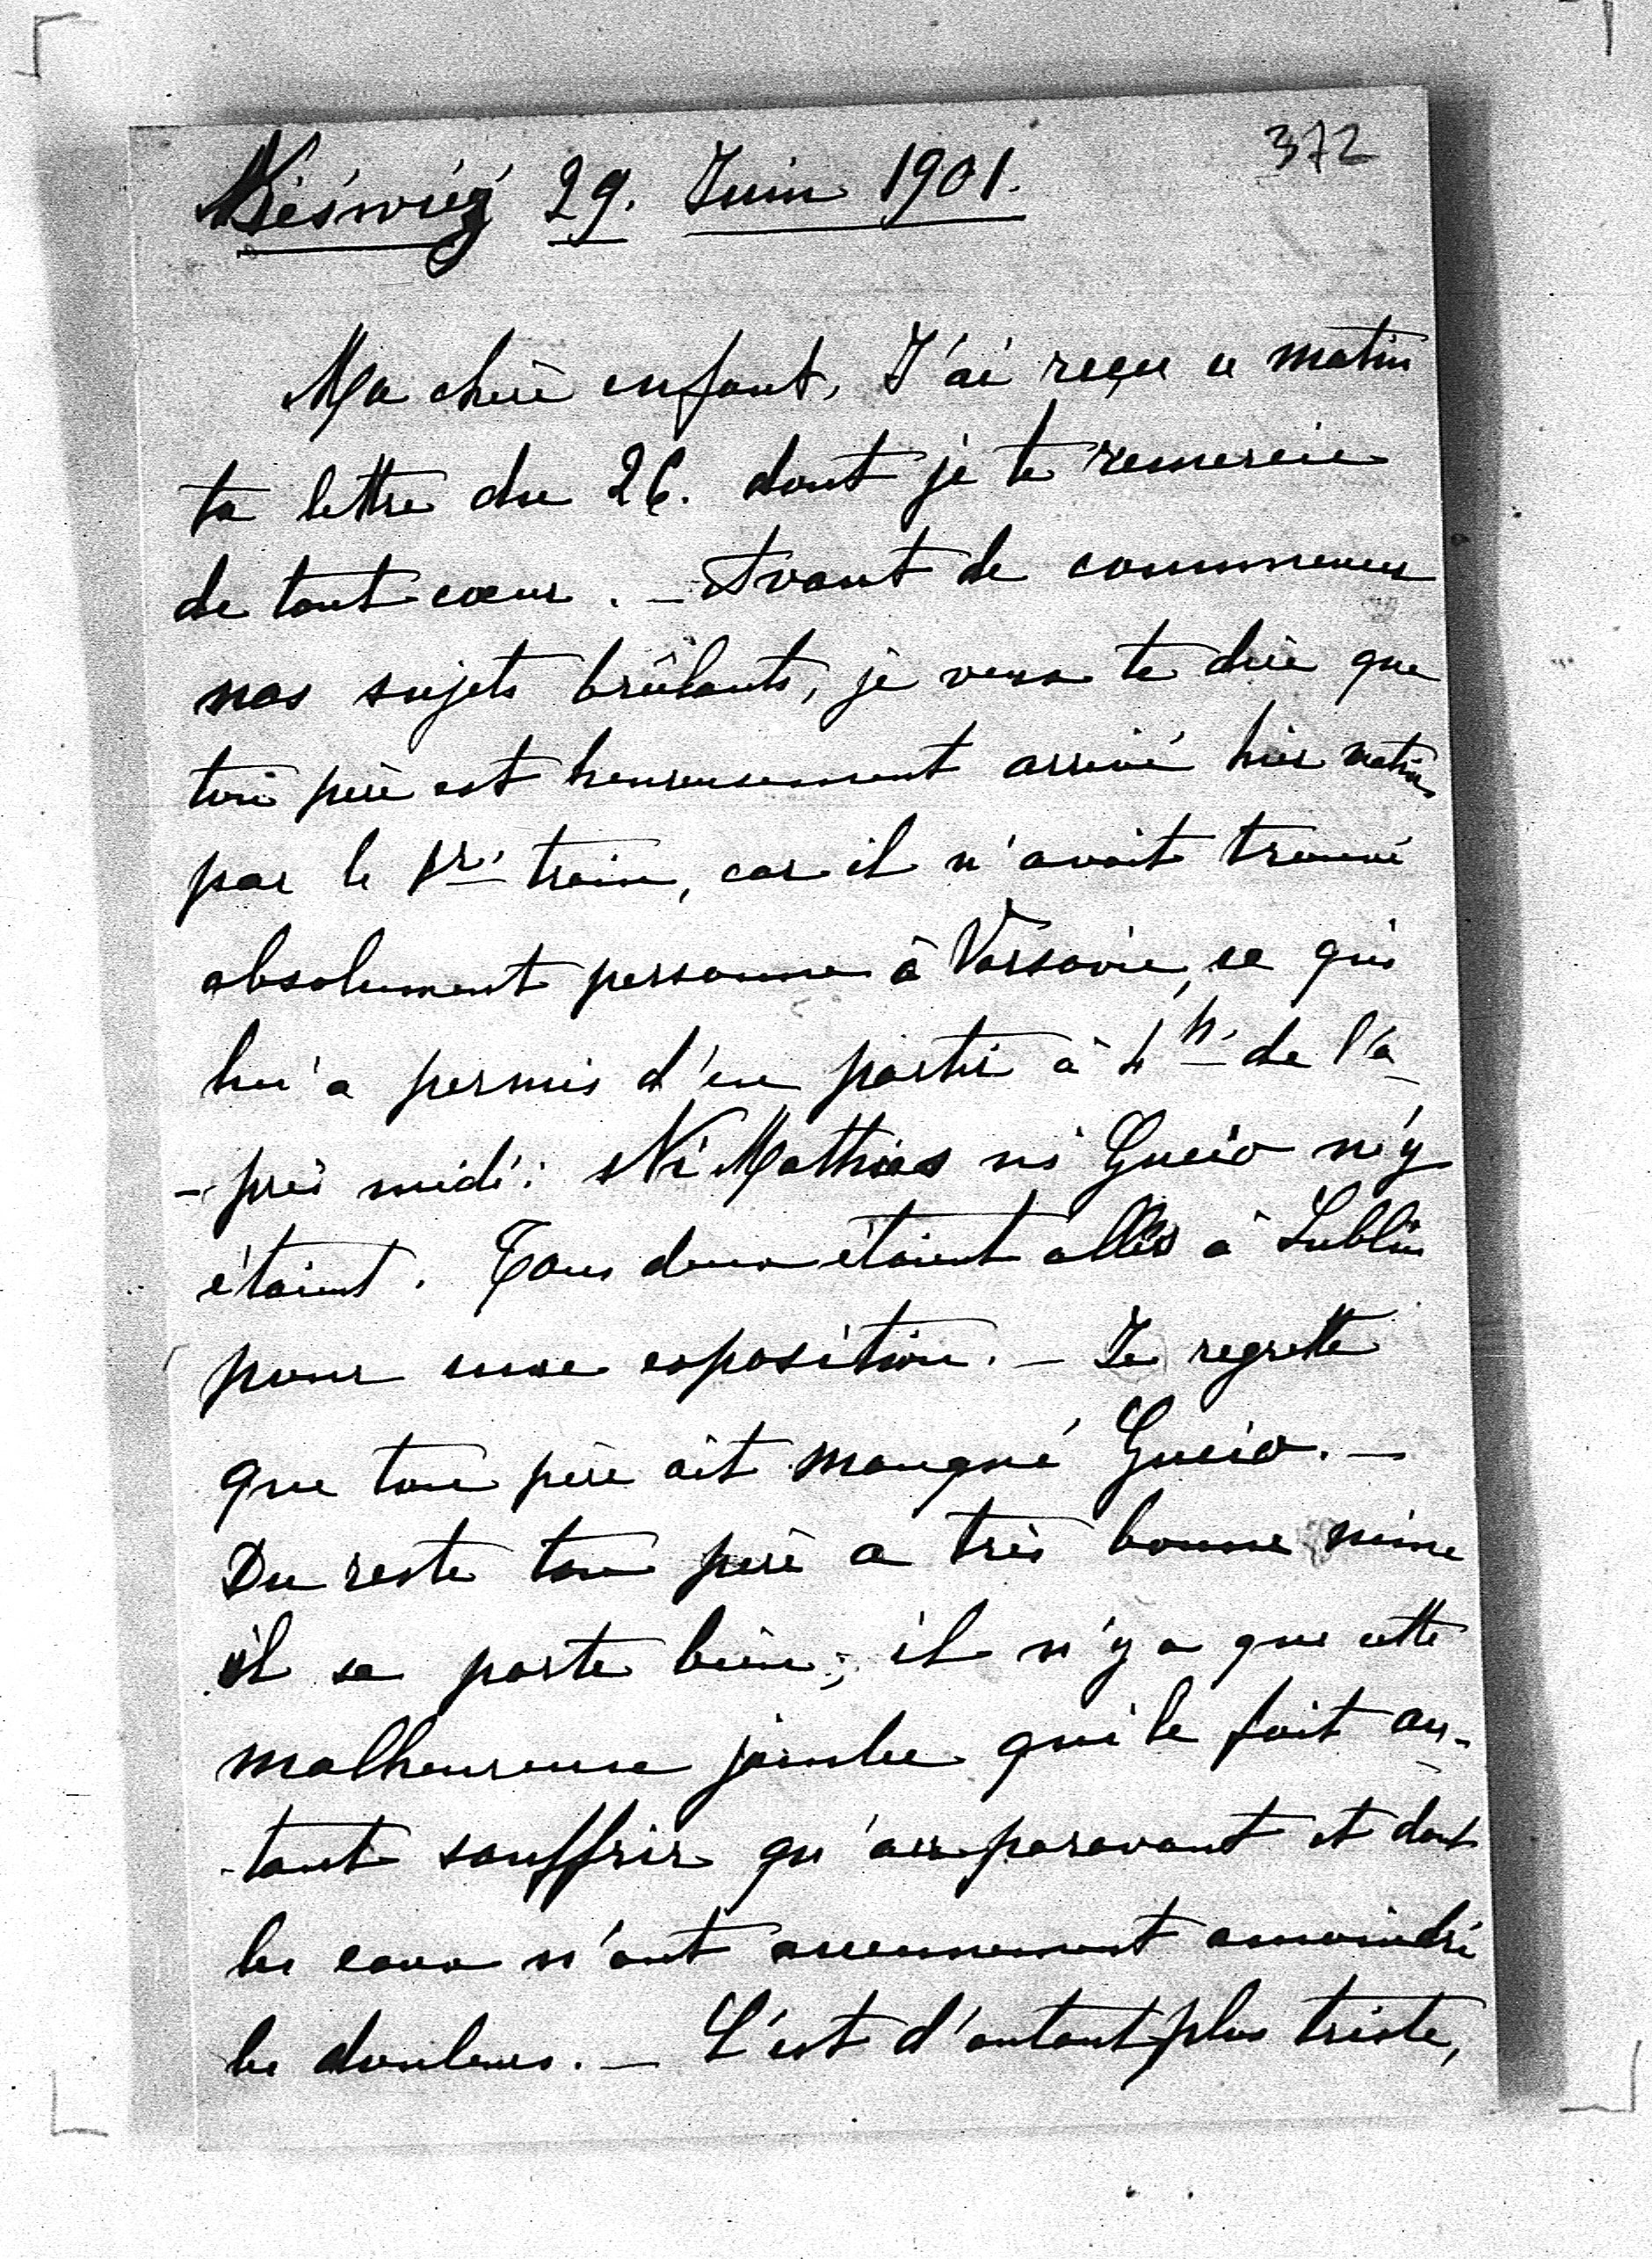 372
Niéswiéź 29. Juin 1901.
Ma chère enfant, J'ai reçu ce matin
ta lettre du 26. dont je te remercie
de tout cœur. — Avant de commencer
nos sujets brûlants, je veux te dire que
ton père est heureusement arrivé hier matin
par le 1r. train, car il n'avait trouvé
absolument personne à Varsovie, ce qui
lui a permis d'en partir à 4 h. de l'a-
-près midi: Ni Mathias ni Gucio n'y
étaient. Tous deux étaient allés à Lublin
pour une exposition. — Je regrette
que ton père ait manqué Gucio. —
Du reste ton père a très bonne mine
il se porte bien; il n'y a que cette
malheureuse jambe qui le fait au-
-tant souffrir qu'auparavant et dont
les eaux n'ont aucunement amoindri
les douleurs. — C'est d'autant plus triste,